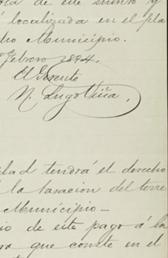 ola de este si
localizada en el pla
Municipio.
Febrero 1894.
El Gerente
N. Lugo Viña.
dad tendrá el derecho
á la tasacion del terre
Municipio—
io de este pago á la
que conste en el